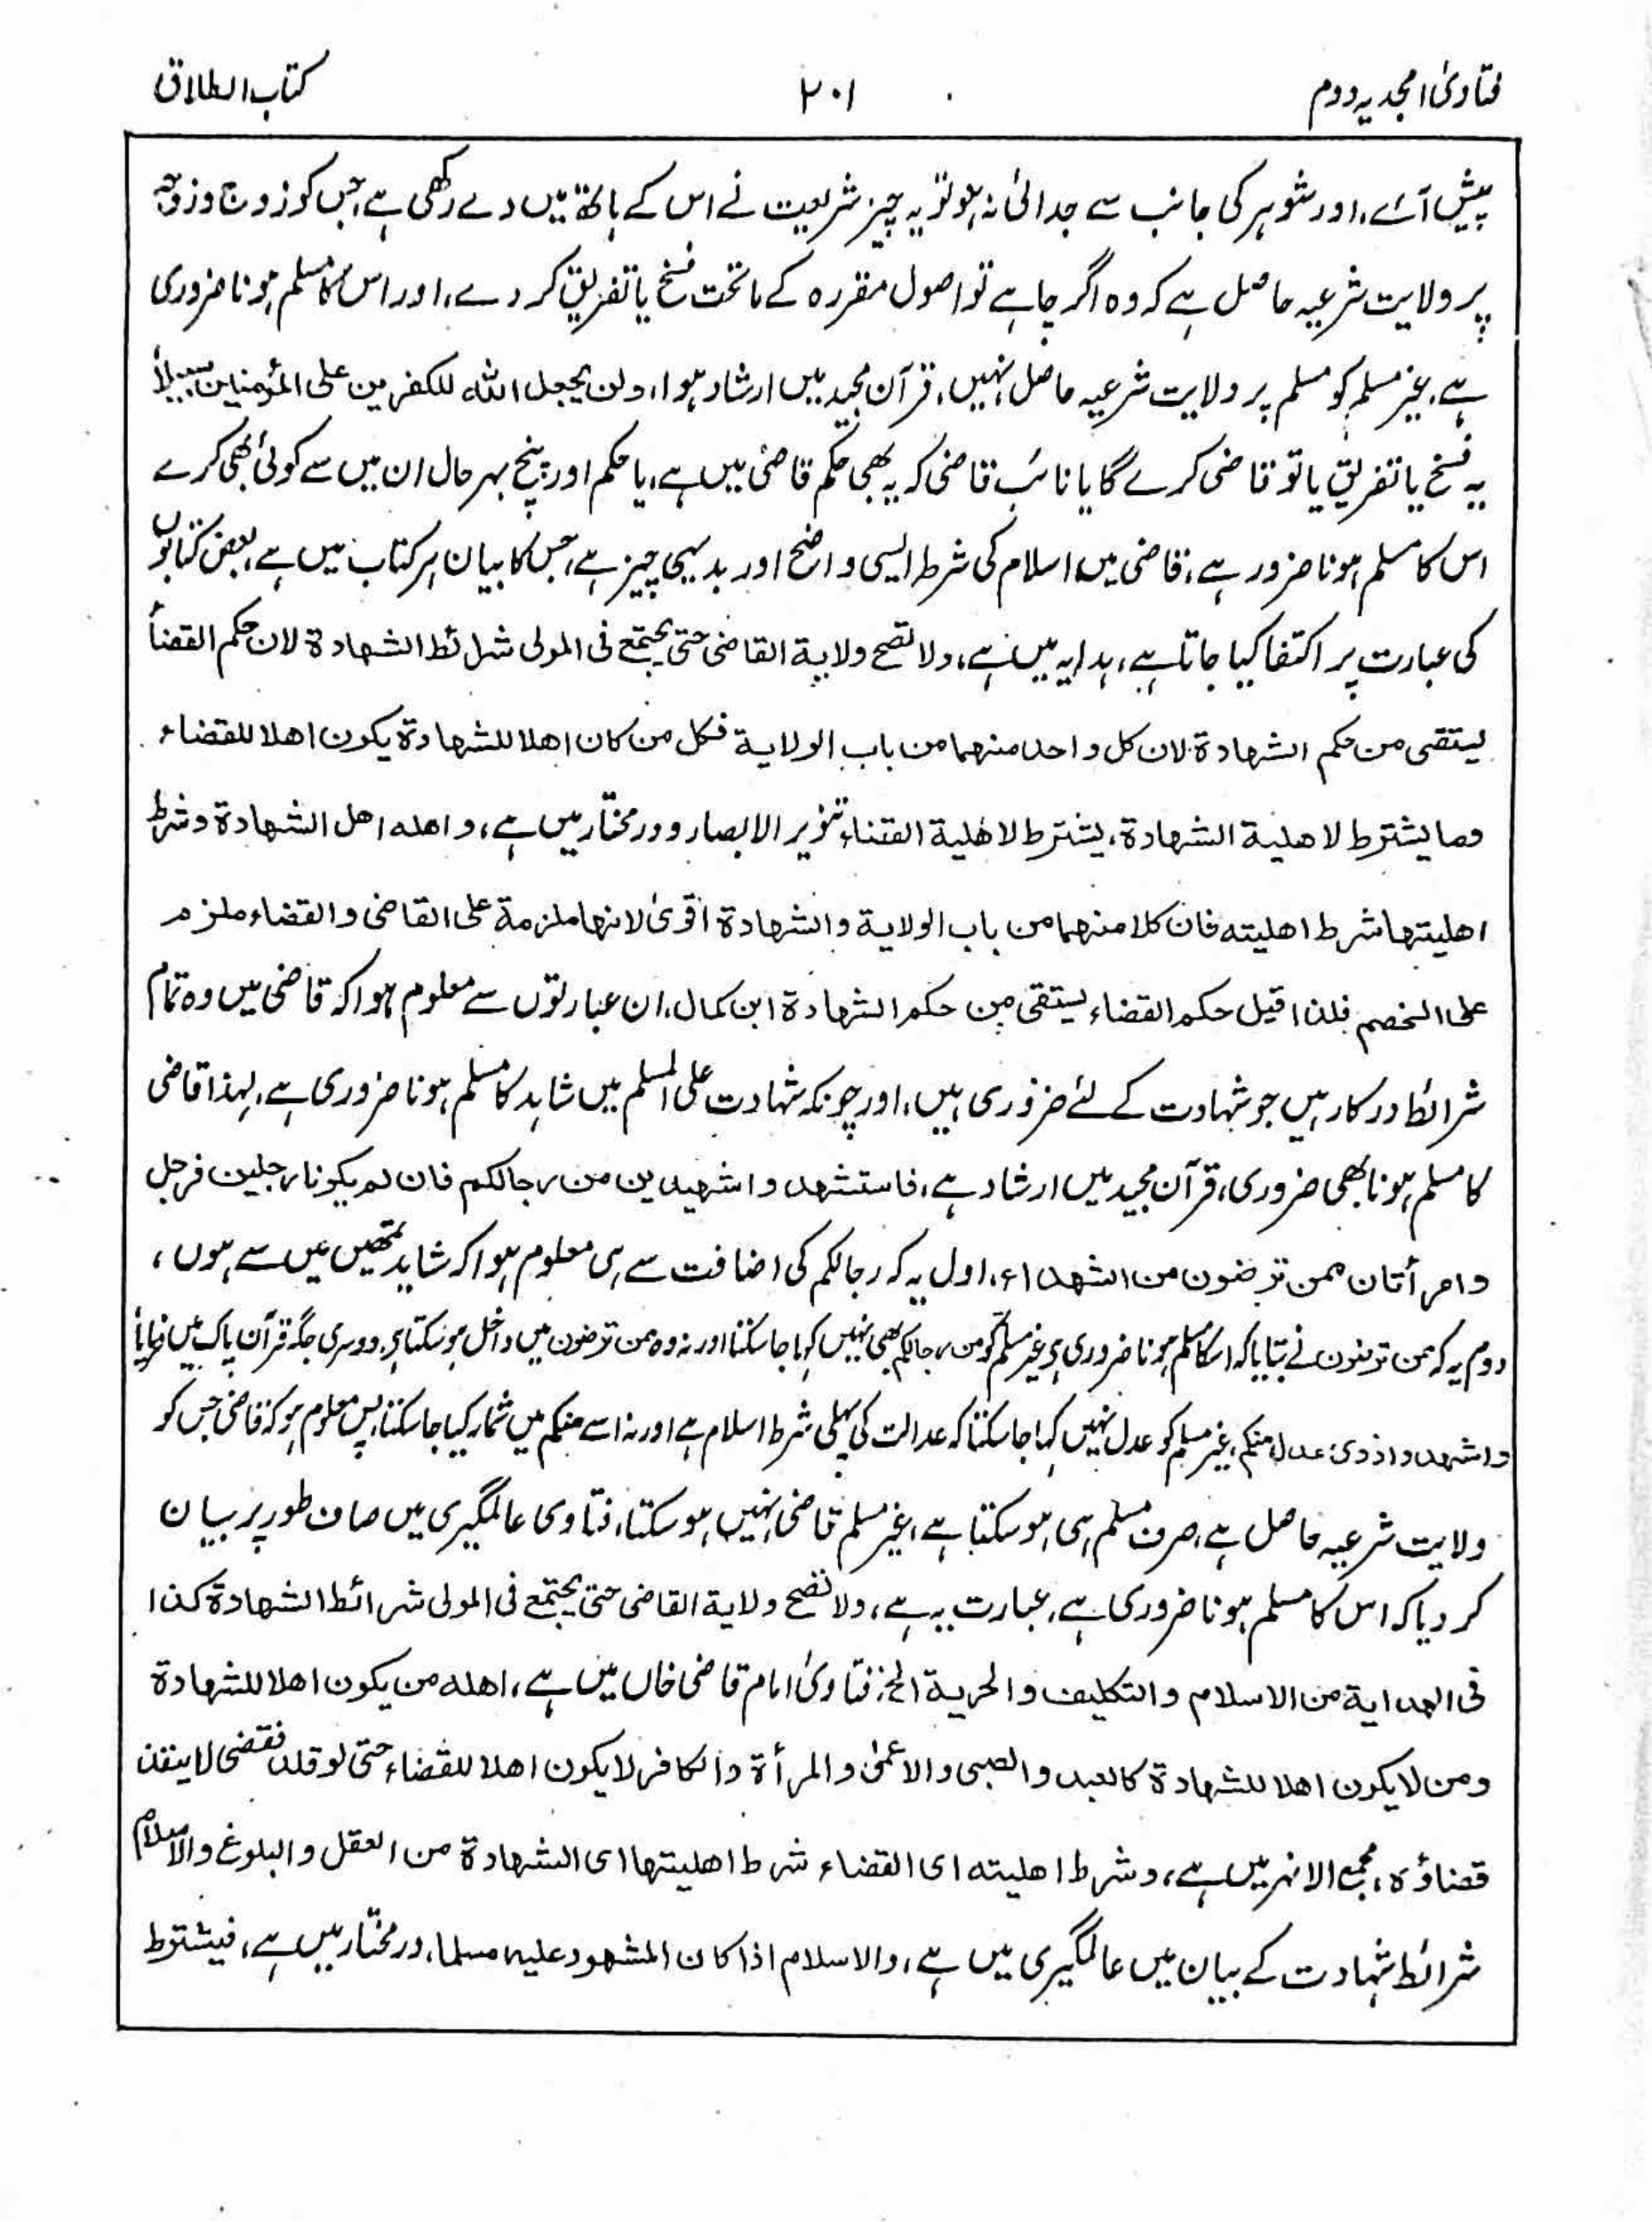 فتاویٰ امجدیہ دوم ۲۰۱ کتاب الطلاق
پیش آئے، اور شوہر کی جانب سے جدائی نہ ہو تو یہ چیز شریعت نے اس کے ہاتھ میں دے رکھی ہے، جس کو زوج و زوجہ
پر ولایت شرعیہ حاصل ہے کہ وہ اگر چاہے تو اصول مقررہ کے ماتحت فسخ یا تفریق کر دے، اور اس کا مسلم ہونا ضروری
ہے، غیر مسلم کو مسلم پر ولایت شرعیہ حاصل نہیں، قرآن مجید میں ارشاد ہوا، ولن یجعل اللہ للکفرین علی المؤمنین سبیلاً
یہ فسخ یا تفریق یا تو قاضی کرے گا یا نائب قاضی کہ یہ بھی حکم قاضی میں ہے، یا حکم اور پنچ بہر حال ان میں سے کوئی بھی کرے
اس کا مسلم ہونا ضرور ہے، قاضی میں اسلام کی شرط ایسی واضح اور بدیہی چیز ہے، جس کا بیان ہر کتاب میں ہے، بعض کتابوں
کی عبارت پر اکتفا کیا جاتا ہے، ہدایہ میں ہے، ولا تصح ولایة القاضی حتی یجتمع فی المولی شرائط الشهادة لان حکم القضأ
لیستقی من حکم الشهادة لان کل واحد منهما من باب الولایة فکل من کان اهلا للشهادة یکون اهلا للقضاء
وما یشترط لاهلیة الشهادة، یشترط لاهلیة القضاء تنویر الابصار و در مختار میں ہے، و اهله اهل الشهادة وشرط
اهلیتها شرط اهلیته فان کلا منهما من باب الولایة والشهادة اقویٰ لانها ملزمة علی القاضی والقضاء ملزم
علی الخصم فلذا قیل حکم القضاء یستقی من حکم الشهادة ابن کمال، ان عبارتوں سے معلوم ہوا کہ قاضی میں وہ تمام
شرائط درکار ہیں جو شہادت کے لئے ضروری ہیں، اور چونکہ شہادت علی المسلم میں شاہد کا مسلم ہونا ضروری ہے، لہذا قاضی
کا مسلم ہونا بھی ضروری، قرآن مجید میں ارشاد ہے، فاستشهدوا شهیدین من رجالکم فان لم یکونا رجلین فرجل
وامرأتان ممن ترضون من الشهداء، اول یہ کہ رجالکم کی اضافت سے ہی معلوم ہوا کہ شاہد تمھیں میں سے ہوں،
دوم یہ کہ ممن ترضون نے بتایا کہ اسکا مسلم ہونا ضروری ہے غیر مسلم کو من رجالکم بھی نہیں کہا جا سکتا اور نہ وہ ممن ترضون میں داخل ہو سکتا ہے، دوسری جگہ قرآن پاک میں فرمایا
واشهدوا ذوی عدل منکم، غیر مسلم کو عدل نہیں کہا جا سکتا کہ عدالت کی پہلی شرط اسلام ہے اور نہ اسے منکم میں شمار کیا جا سکتا، پس معلوم ہو کہ قاضی جس کو
ولایت شرعیہ حاصل ہے، صرف مسلم ہی ہو سکتا ہے، غیر مسلم قاضی نہیں ہو سکتا، فتاوی عالمگیری میں صاف طور پر بیان
کر دیا کہ اس کا مسلم ہونا ضروری ہے، عبارت یہ ہے، ولا تصح ولایة القاضی حتی یجتمع فی المولی شرائط الشهادة کذا
فی الهدایة من الاسلام والتکلیف والحریة الخ، فتاویٰ امام قاضی خاں میں ہے، اهله من یکون اهلا للشهادة
ومن لا یکون اهلا للشهادة کالعبد والصبی والاعمیٰ والمرأة والکافر لا یکون اهلا للقضاء حتی لو قلد فقضی لا ینفذ
قضاؤہ، مجمع الانہر میں ہے، وشرط اهلیته ای القضاء شرط اهلیتها ای الشهادة من العقل والبلوغ والاسلام
شرائط شہادت کے بیان میں عالمگیری میں ہے، والاسلام اذا کان المشهود علیه مسلما، در مختار میں ہے، فیشترط